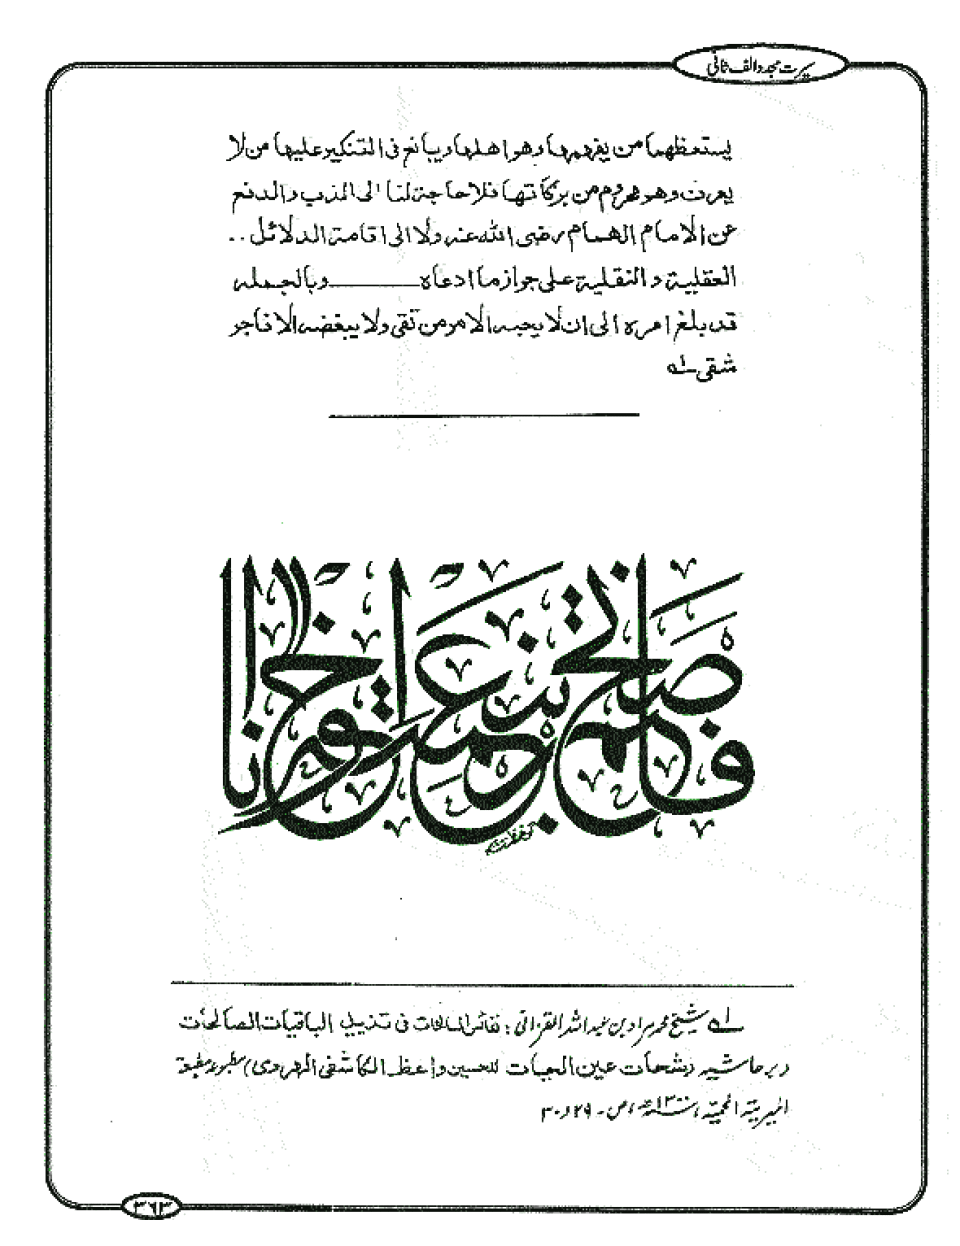 سیرت مجدد الف ثانی
يستعظمها من يفهمها وهو اهلها ويبالغ فى التنكير عليها من لا
يعرف وهو محروم من بركاتها فلا حاجة لنا الى الذب والدفع
عن الامام الهمام رضى الله عنه ولا الى اقامة الدلائل ..
العقلية والنقلية على جواز ما ادعاه ـــــــ وبالجمله
قد بلغ امره الى ان لا يحبه الا مومن تقى ولا يبغضه الا فاجر
شقى لـه
فاصبحتم بنعمته اخوانا
لـه شیخ محمد مراد بن عبداللہ القزانی: نفائس السالحات فی تذییل الباقیات الصالحات
در حاشیہ رشحات عین الحیات للحسین واعظ الکاشفی الہروی) مطبوعہ مطبعۃ
المیریۃ المحمیۃ، ۱۳۰۰ھ، ص۔ ۲۹ و ۳۰
۳۶۳